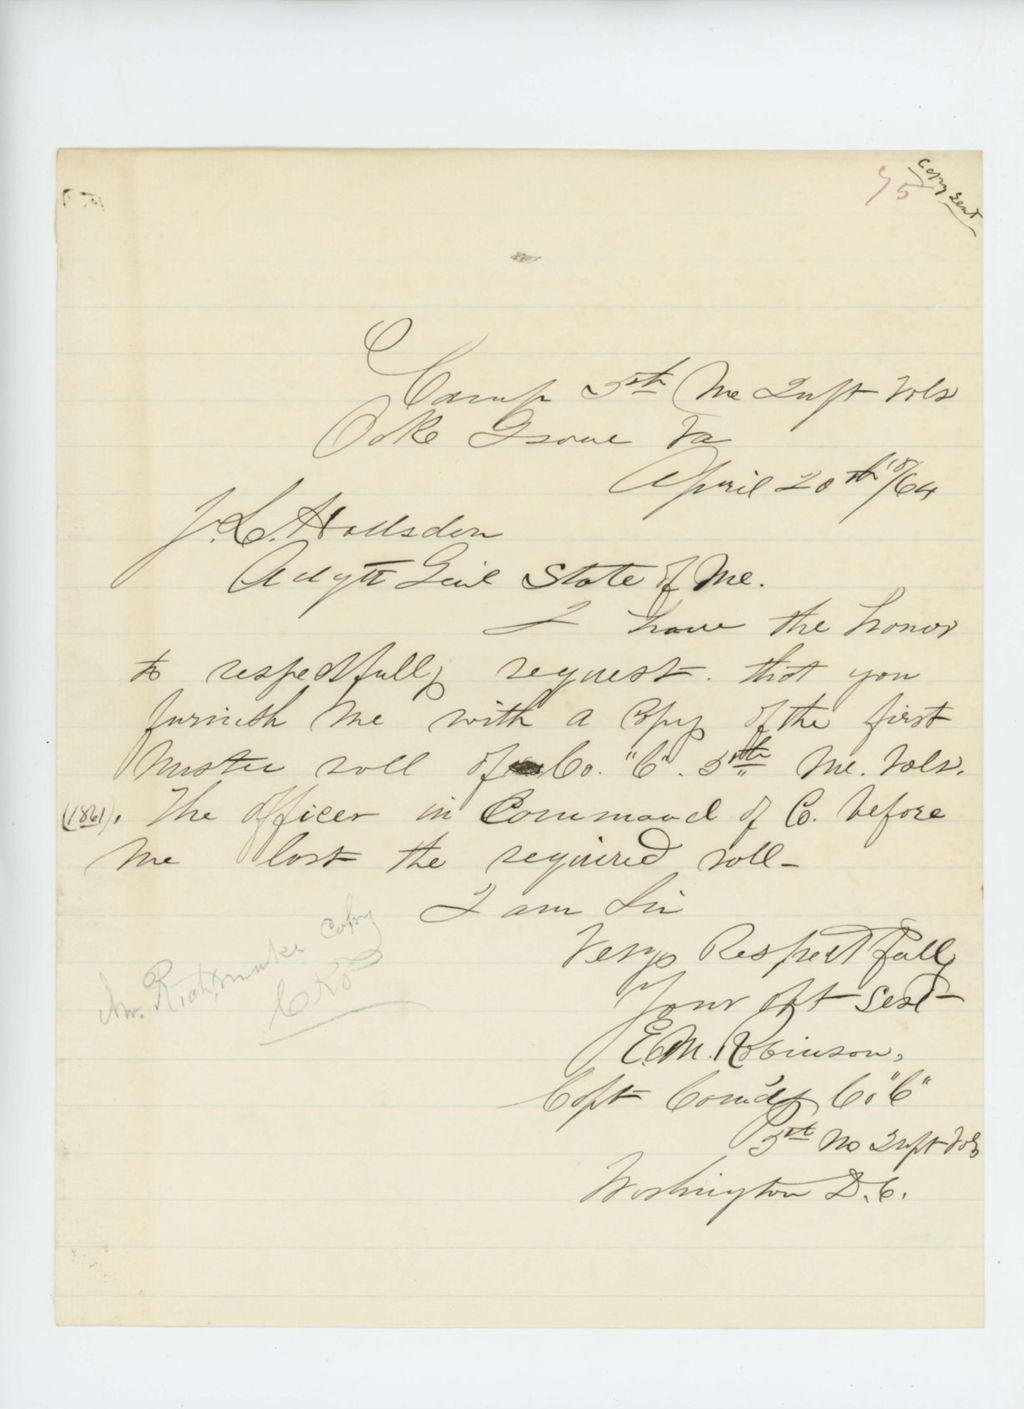 75
Copy sent
Camp 5th Me Inft Vols
Oake Grove Va
April 20th 18/64
J. L. Hodsdon
Adgtt Genl State of Me.
I have the honor
to respectfully request. that you
furnish me with a Copy of the first
Muster roll of Co. "C". 5th Me. Vols.
(1861). The officer in Command of Co. before
me lost the required roll-
I am Sir
Very Respectfully
Your Obt Sert
E.M. Robinson,
Capt Comd'g Co "C"
5th Me Inft Vols
Washington D.C.
Mr. Rich, make copy